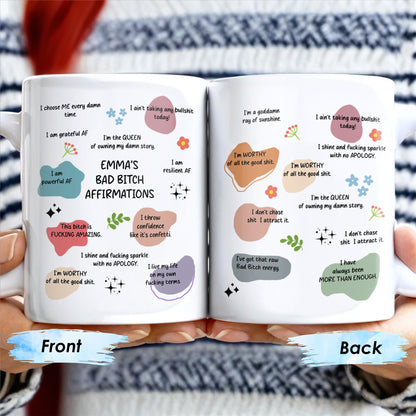 I choose ME every damn
time.
I ain't taking any bullshit
today!
I am grateful AF
I'm the QUEEN
of owning my damn story.
I am
powerful AF
EMMA'S
BAD BITCH
AFFIRMATIONS
I am
resilient AF
This bitch is
FUCKING AMAZING.
I throw
confidence
like it's confetti.
I shine and fucking sparkle
with no APOLOGY.
I'm WORTHY
of all the good shit.
I live my life
on my own
fucking terms
I'm a goddamn
ray of sunshine.
I ain't taking any bullshit
today!
I'm WORTHY
of all the good shit.
I shine and fucking sparkle
with no APOLOGY.
I'm WORTHY
of all the good shit.
I'm the QUEEN
of owning my damn story.
I don't chase
shit I attract it.
I don't chase
shit I attract it.
I've got that raw
Bad Bitch energy.
I have
always been
MORE THAN ENOUGH.
Front
Back